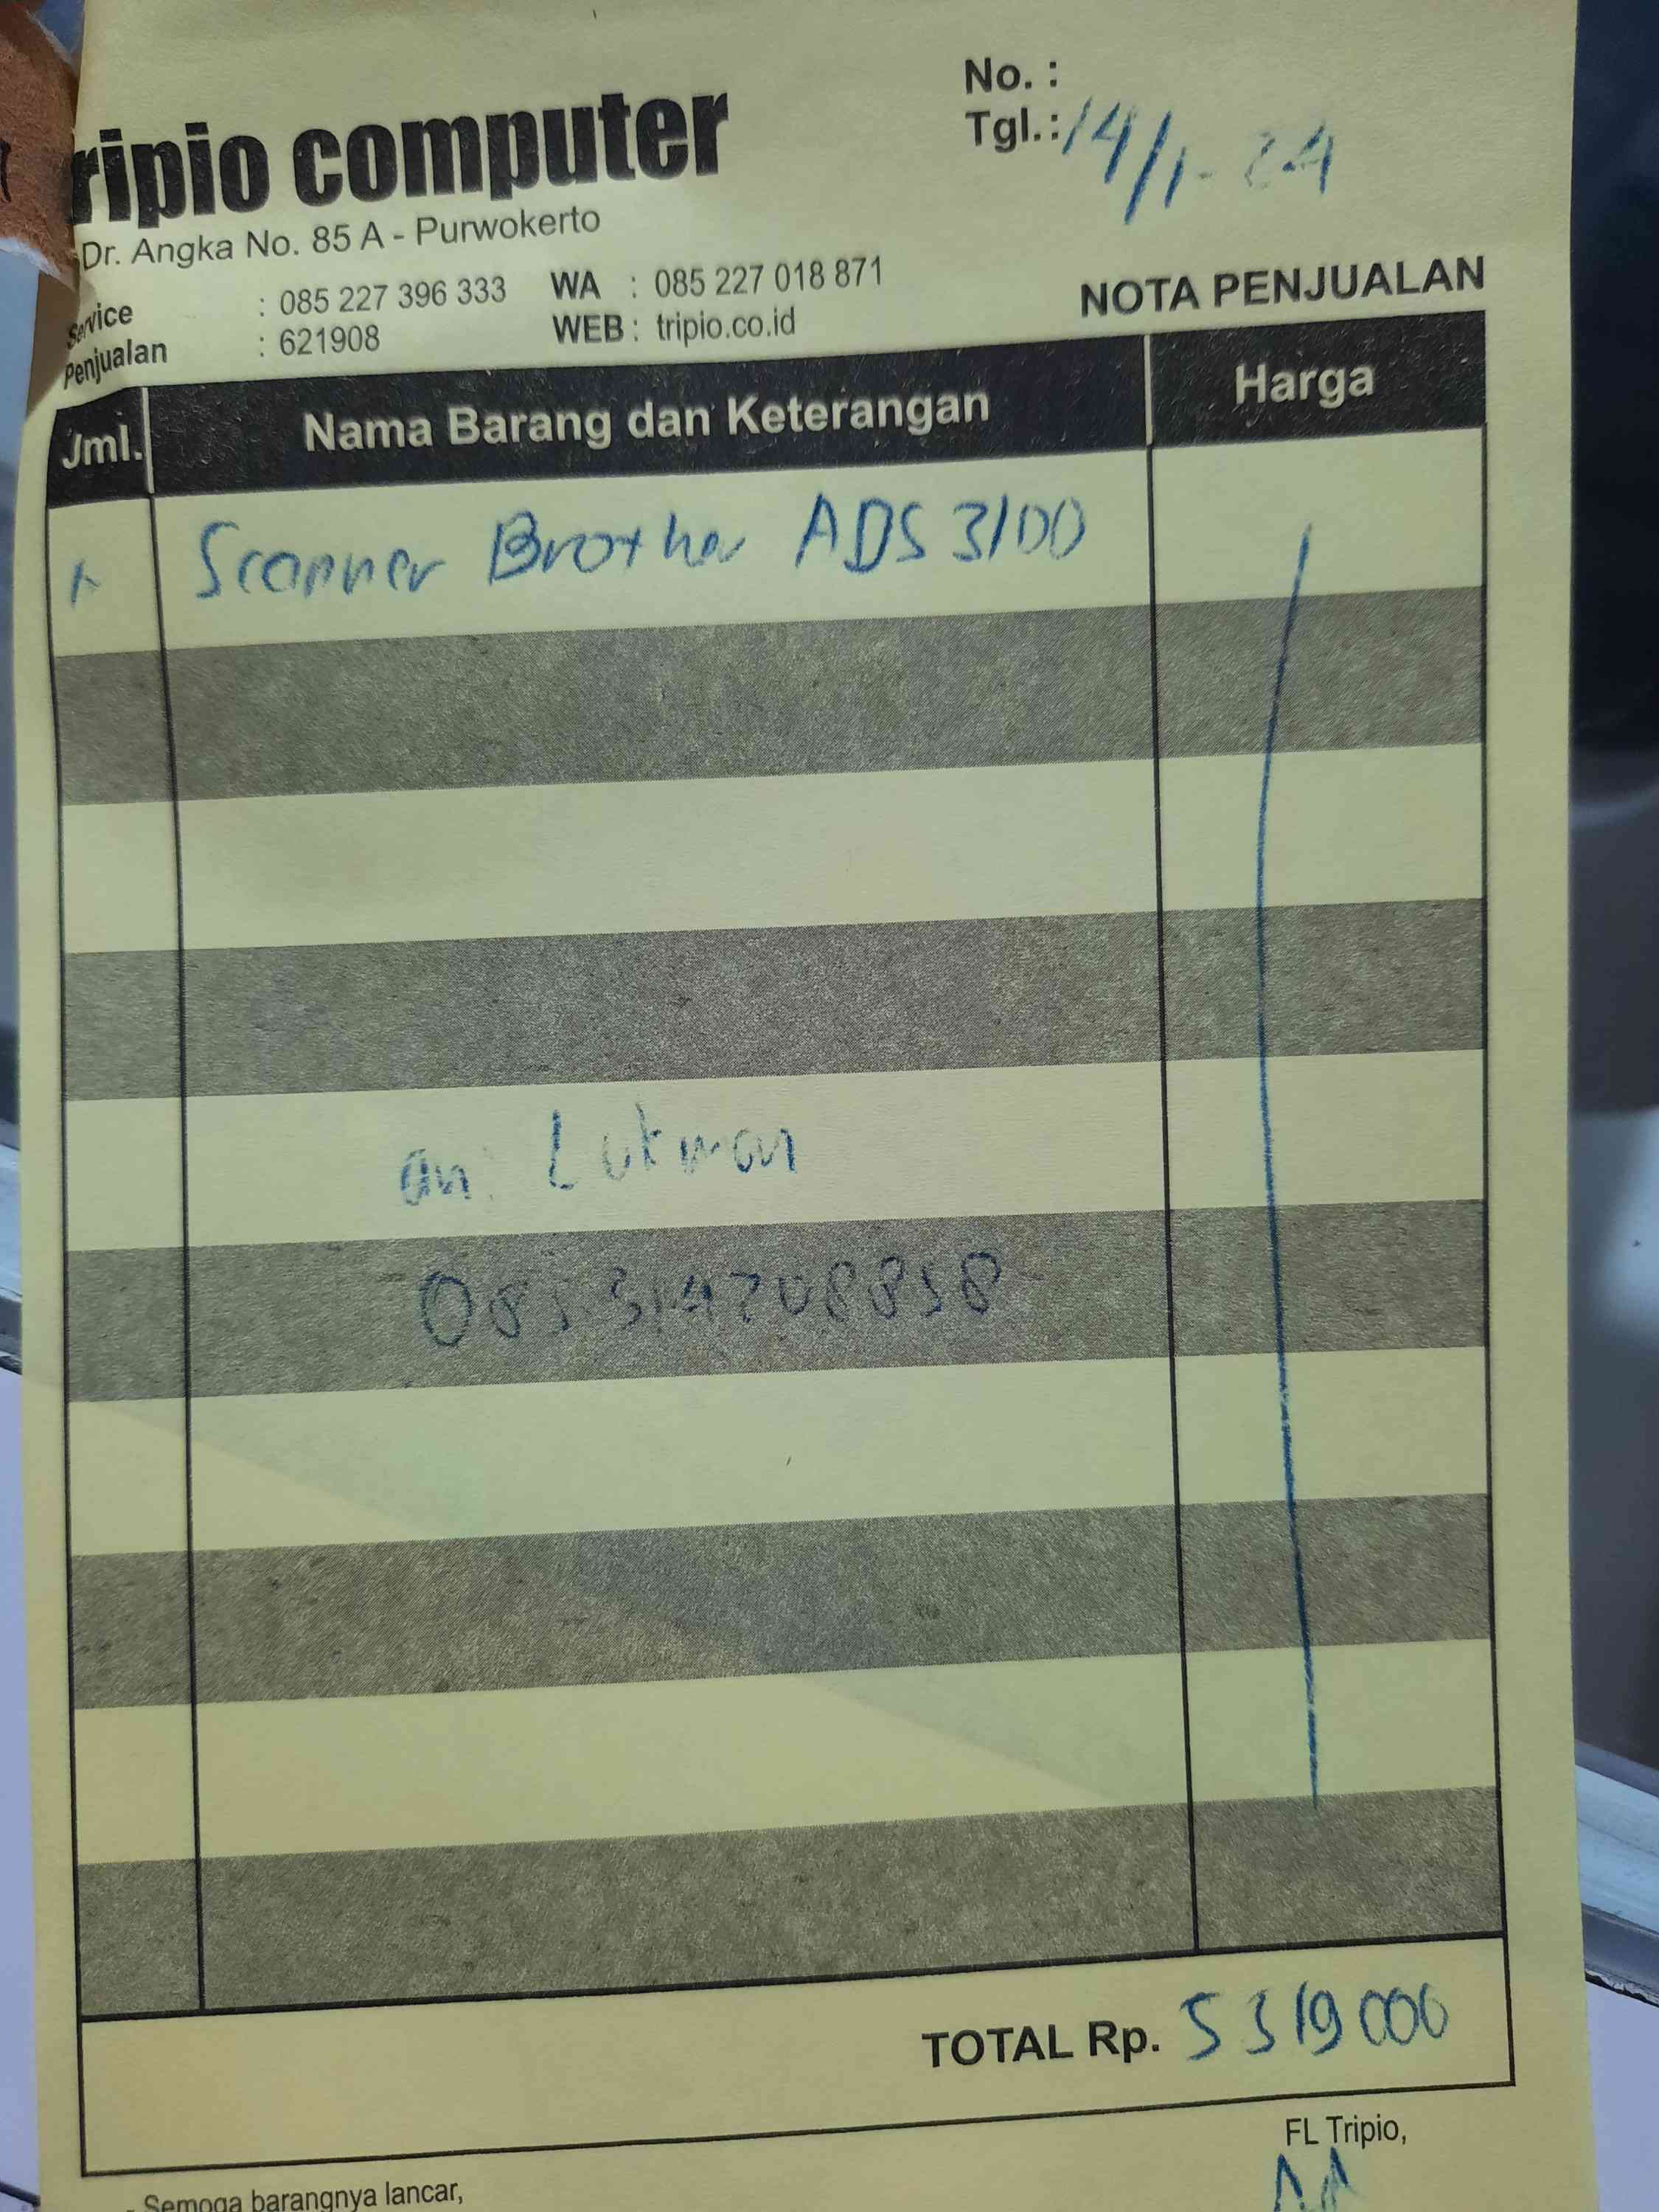 ripio computer
No. :
Tgl.: 14/1-24
Dr. Angka No. 85 A - Purwokerto
Service : 085 227 396 333 WA : 085 227 018 871
Penjualan : 621908 WEB : tripio.co.id
NOTA PENJUALAN
Jml. Nama Barang dan Keterangan Harga
1 Scanner Brother ADS 3100
an: Lukman
TOTAL Rp. 5319000
FL Tripio,
- Semoga barangnya lancar,